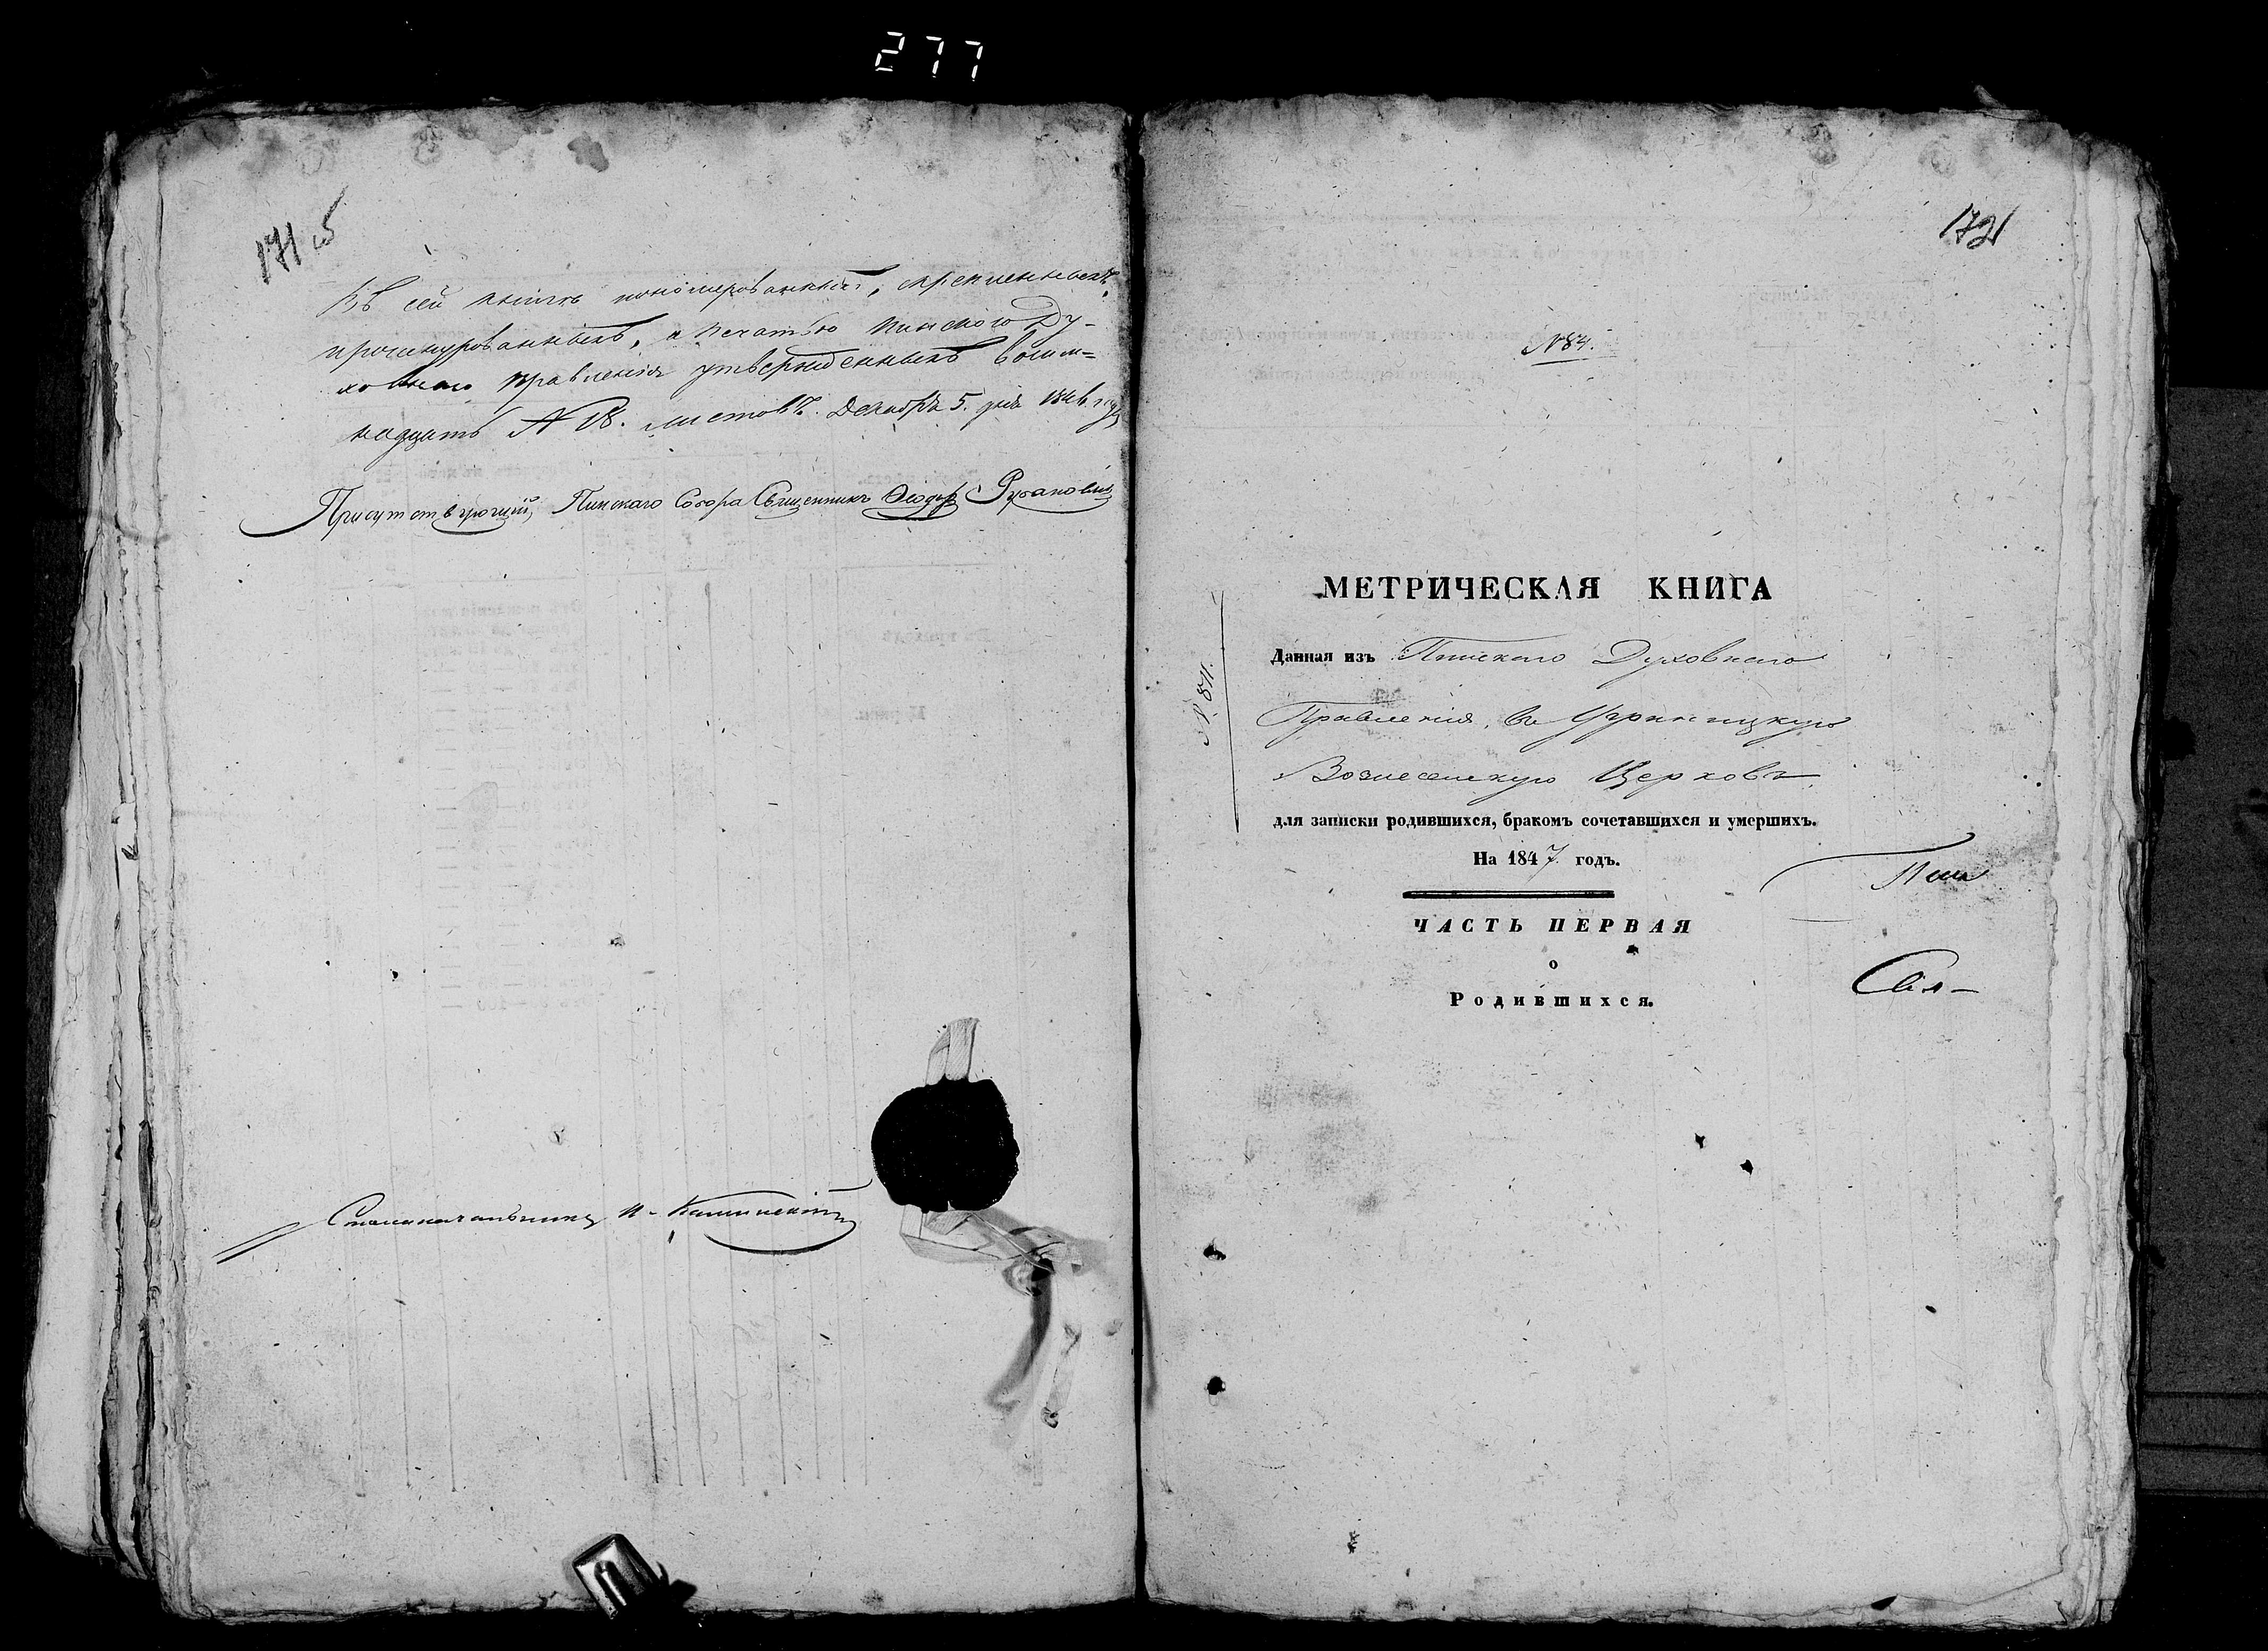 277
171 об
Въ сей книгѣ пономерованныхъ, скрепленныхъ,
прошнурованныхъ, и печатью Пинского Ду-
ховного Правленія утвержденныхъ восем-
надцать № 18. листовъ. Декабря 5. дня 1846. года
Присутствующій, Пинскаго Собора Священникъ Ѳеодоръ
Столоначальникъ
172
№ 84.
МЕТРИЧЕСКАЯ КНИГА
№ 871.
Данная изъ Пинскаго Духовнаго
Правленія, въ Угриничскую
Вознесенскую Церковь
для записки родившихся, бракомъ сочетавшихся и умершихъ.
На 1847 годъ.
Пин
ЧАСТЬ ПЕРВАЯ
о
Свя-
Родившихся.